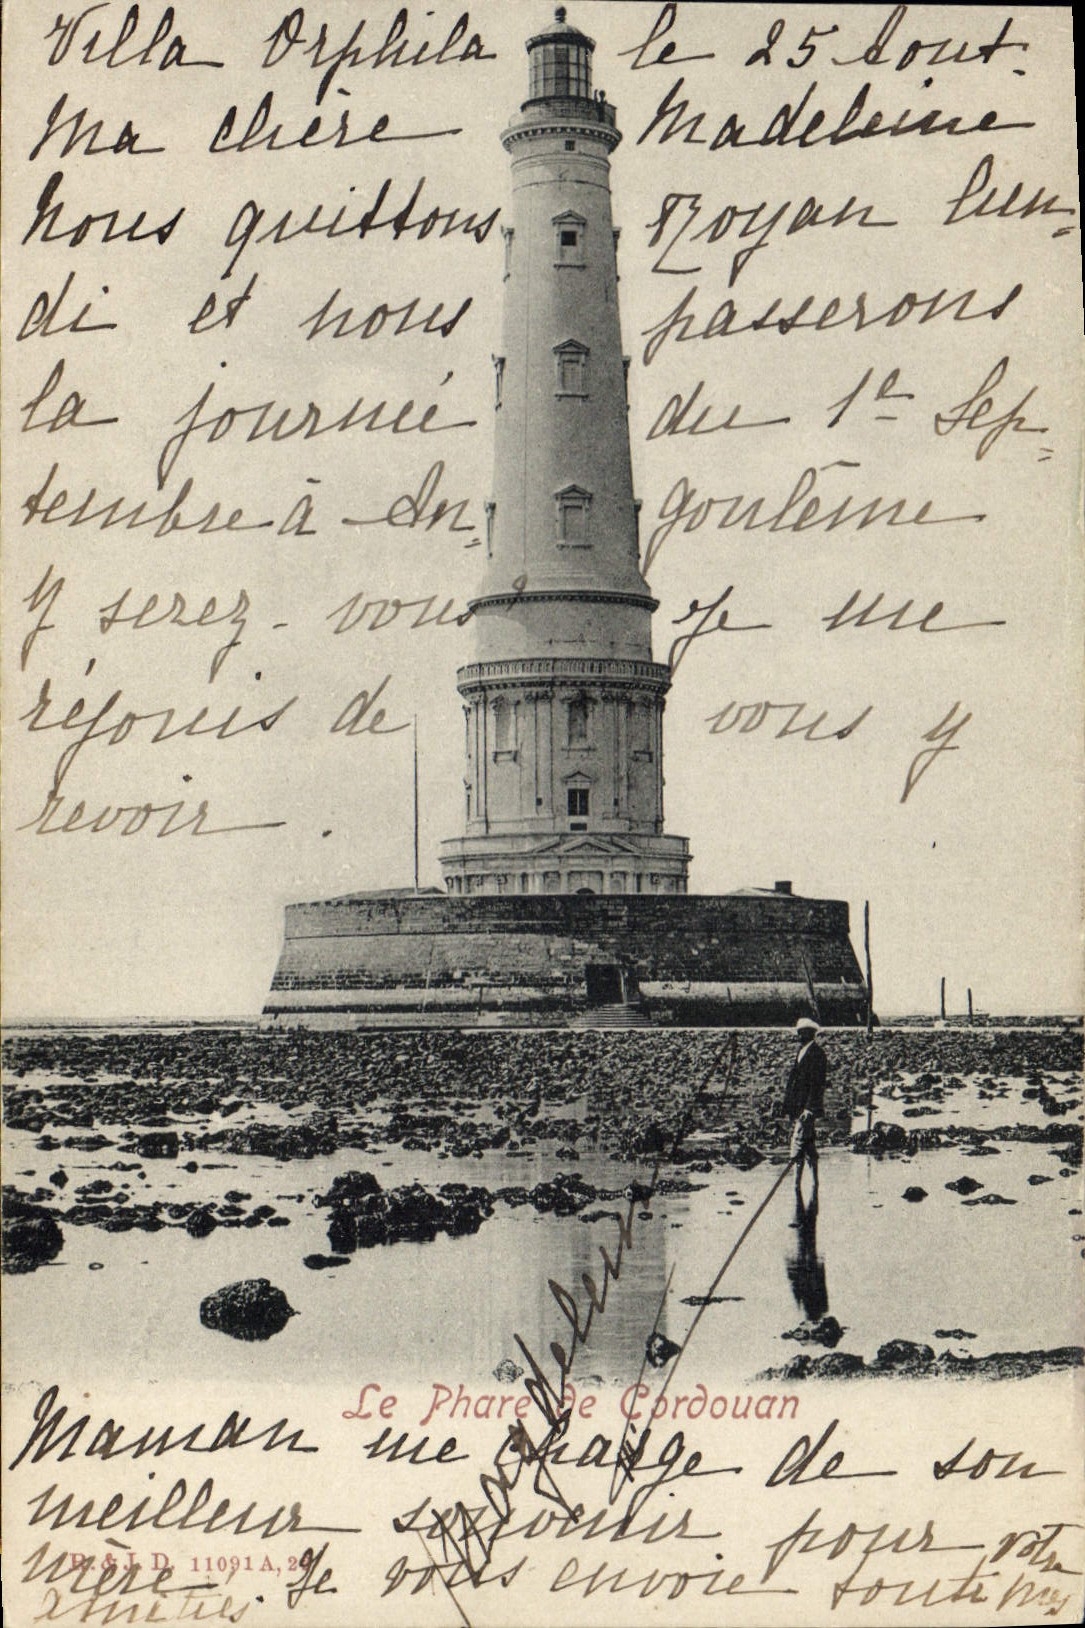 Villa Orphila le 25 Aout.
Ma chère Madeleine
Nous quittons Royan lun=
di et nous passerons
la journée du 1e Sep=
tembre à An= goulême
Y serez-vous? Je me
réjouis de vous y
revoir.
Le Phare de Cordouan
Maman me charge de son
meilleur souvenir pour votre
mère. Je vous envoie toutes mes
amitiés.
Magdeleine
11091 A, 29